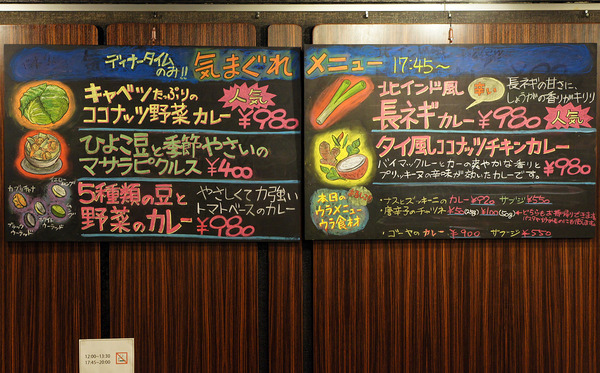 ディナータイム
のみ!!
気まぐれ
キャベツたっぷりの
ココナッツ野菜カレー
人気
¥980
ひよこ豆と季節やさいの
マサラピクルス ¥400
5種類の豆と
野菜のカレー
やさしくて力強い
トマトベースのカレー
¥980
メニュー 17:45〜
北インド風
長ネギカレー ¥980
長ネギの甘さに、
しょうがの香りがキリリ
人気
タイ風ココナッツチキンカレー
バイマックルーとカーの爽やかな香りと
プリッキーヌの辛味が効いたカレーです。
¥980
本日の
ウラメニュー
ウラ食材
・ナスとズッキーニのカレー ¥970 サブジ ¥550
・唐辛子のチャツネ ¥100(50g)
・ゴーヤのカレー ¥900 サブジ ¥550
12:00~13:30
17:45~20:00